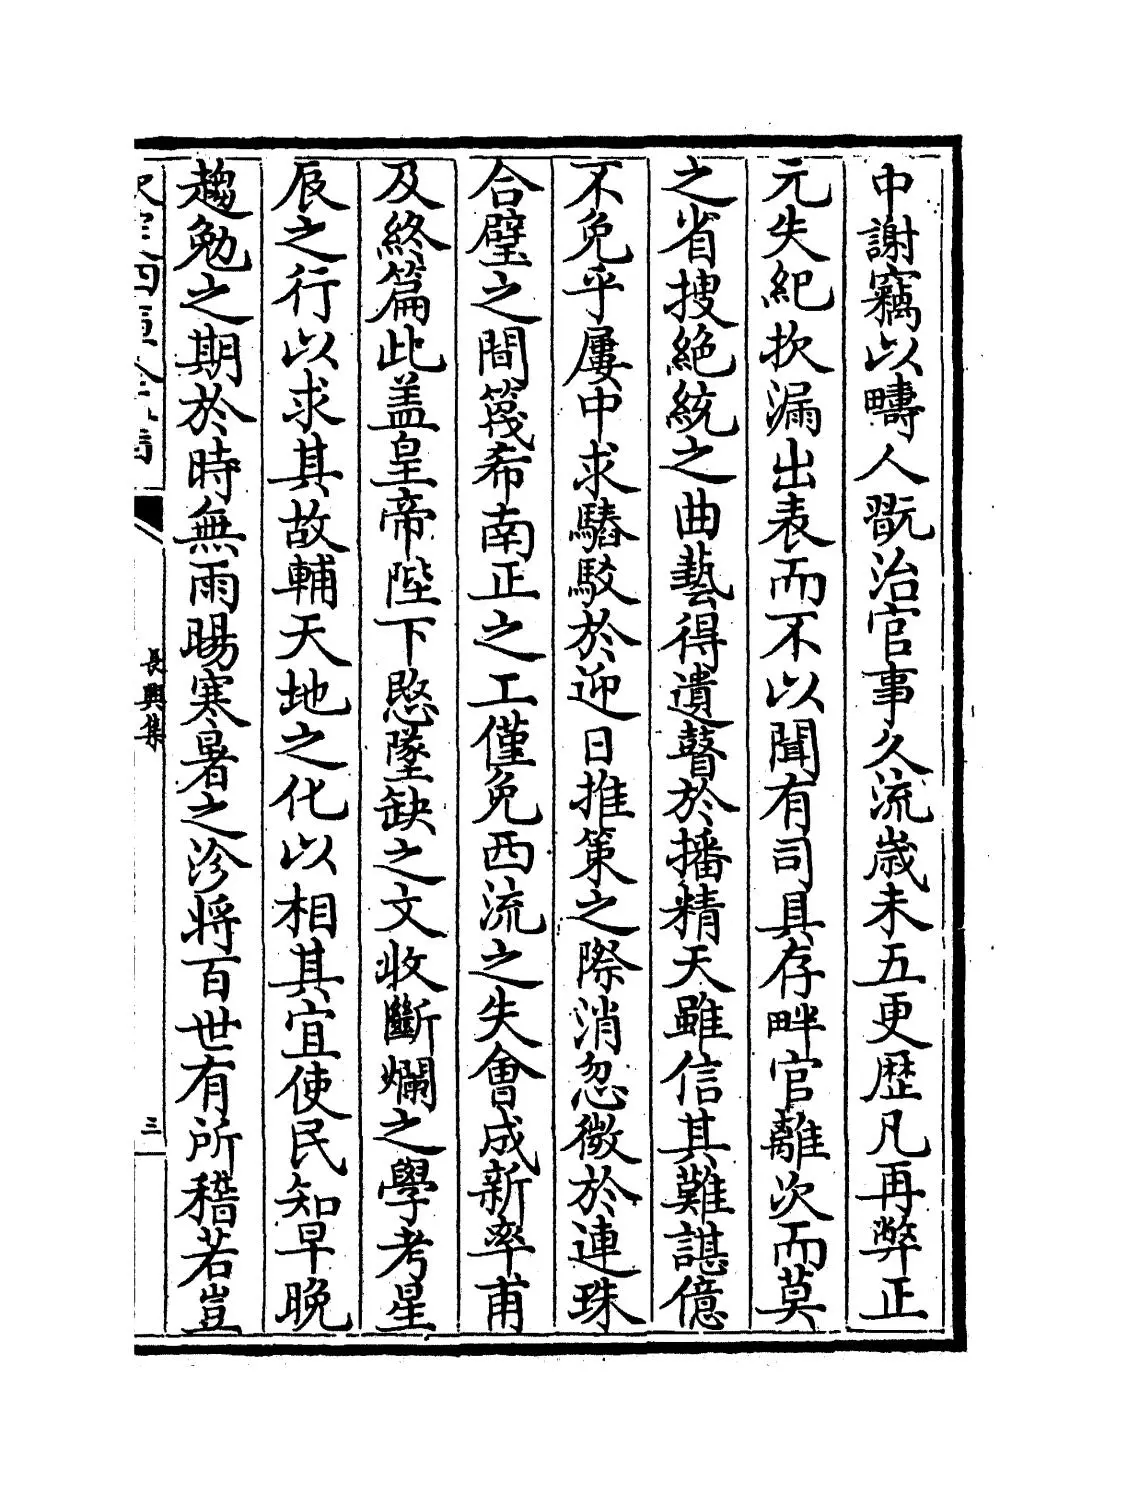 中謝竊以疇人翫治官事久流嵗未五更歴凡再弊正
元失紀抆漏出表而不以聞有司具存畔官離次而莫
之省搜絶統之曲藝得遺瞽於播精天雖信其難諶億
不免乎屢中求騞駁於迎日推策之際消忽微於連珠
合璧之間篾希南正之工僅免西流之失會成新率甫
及終篇此盖皇帝陛下愍墜缺之文收斷爛之學考星
辰之行以求其故輔天地之化以相其宜使民知早晩
趨勉之期於時無雨暘寒暑之沴将百世有所稽若豈
欽定四庫全書
長興集
三